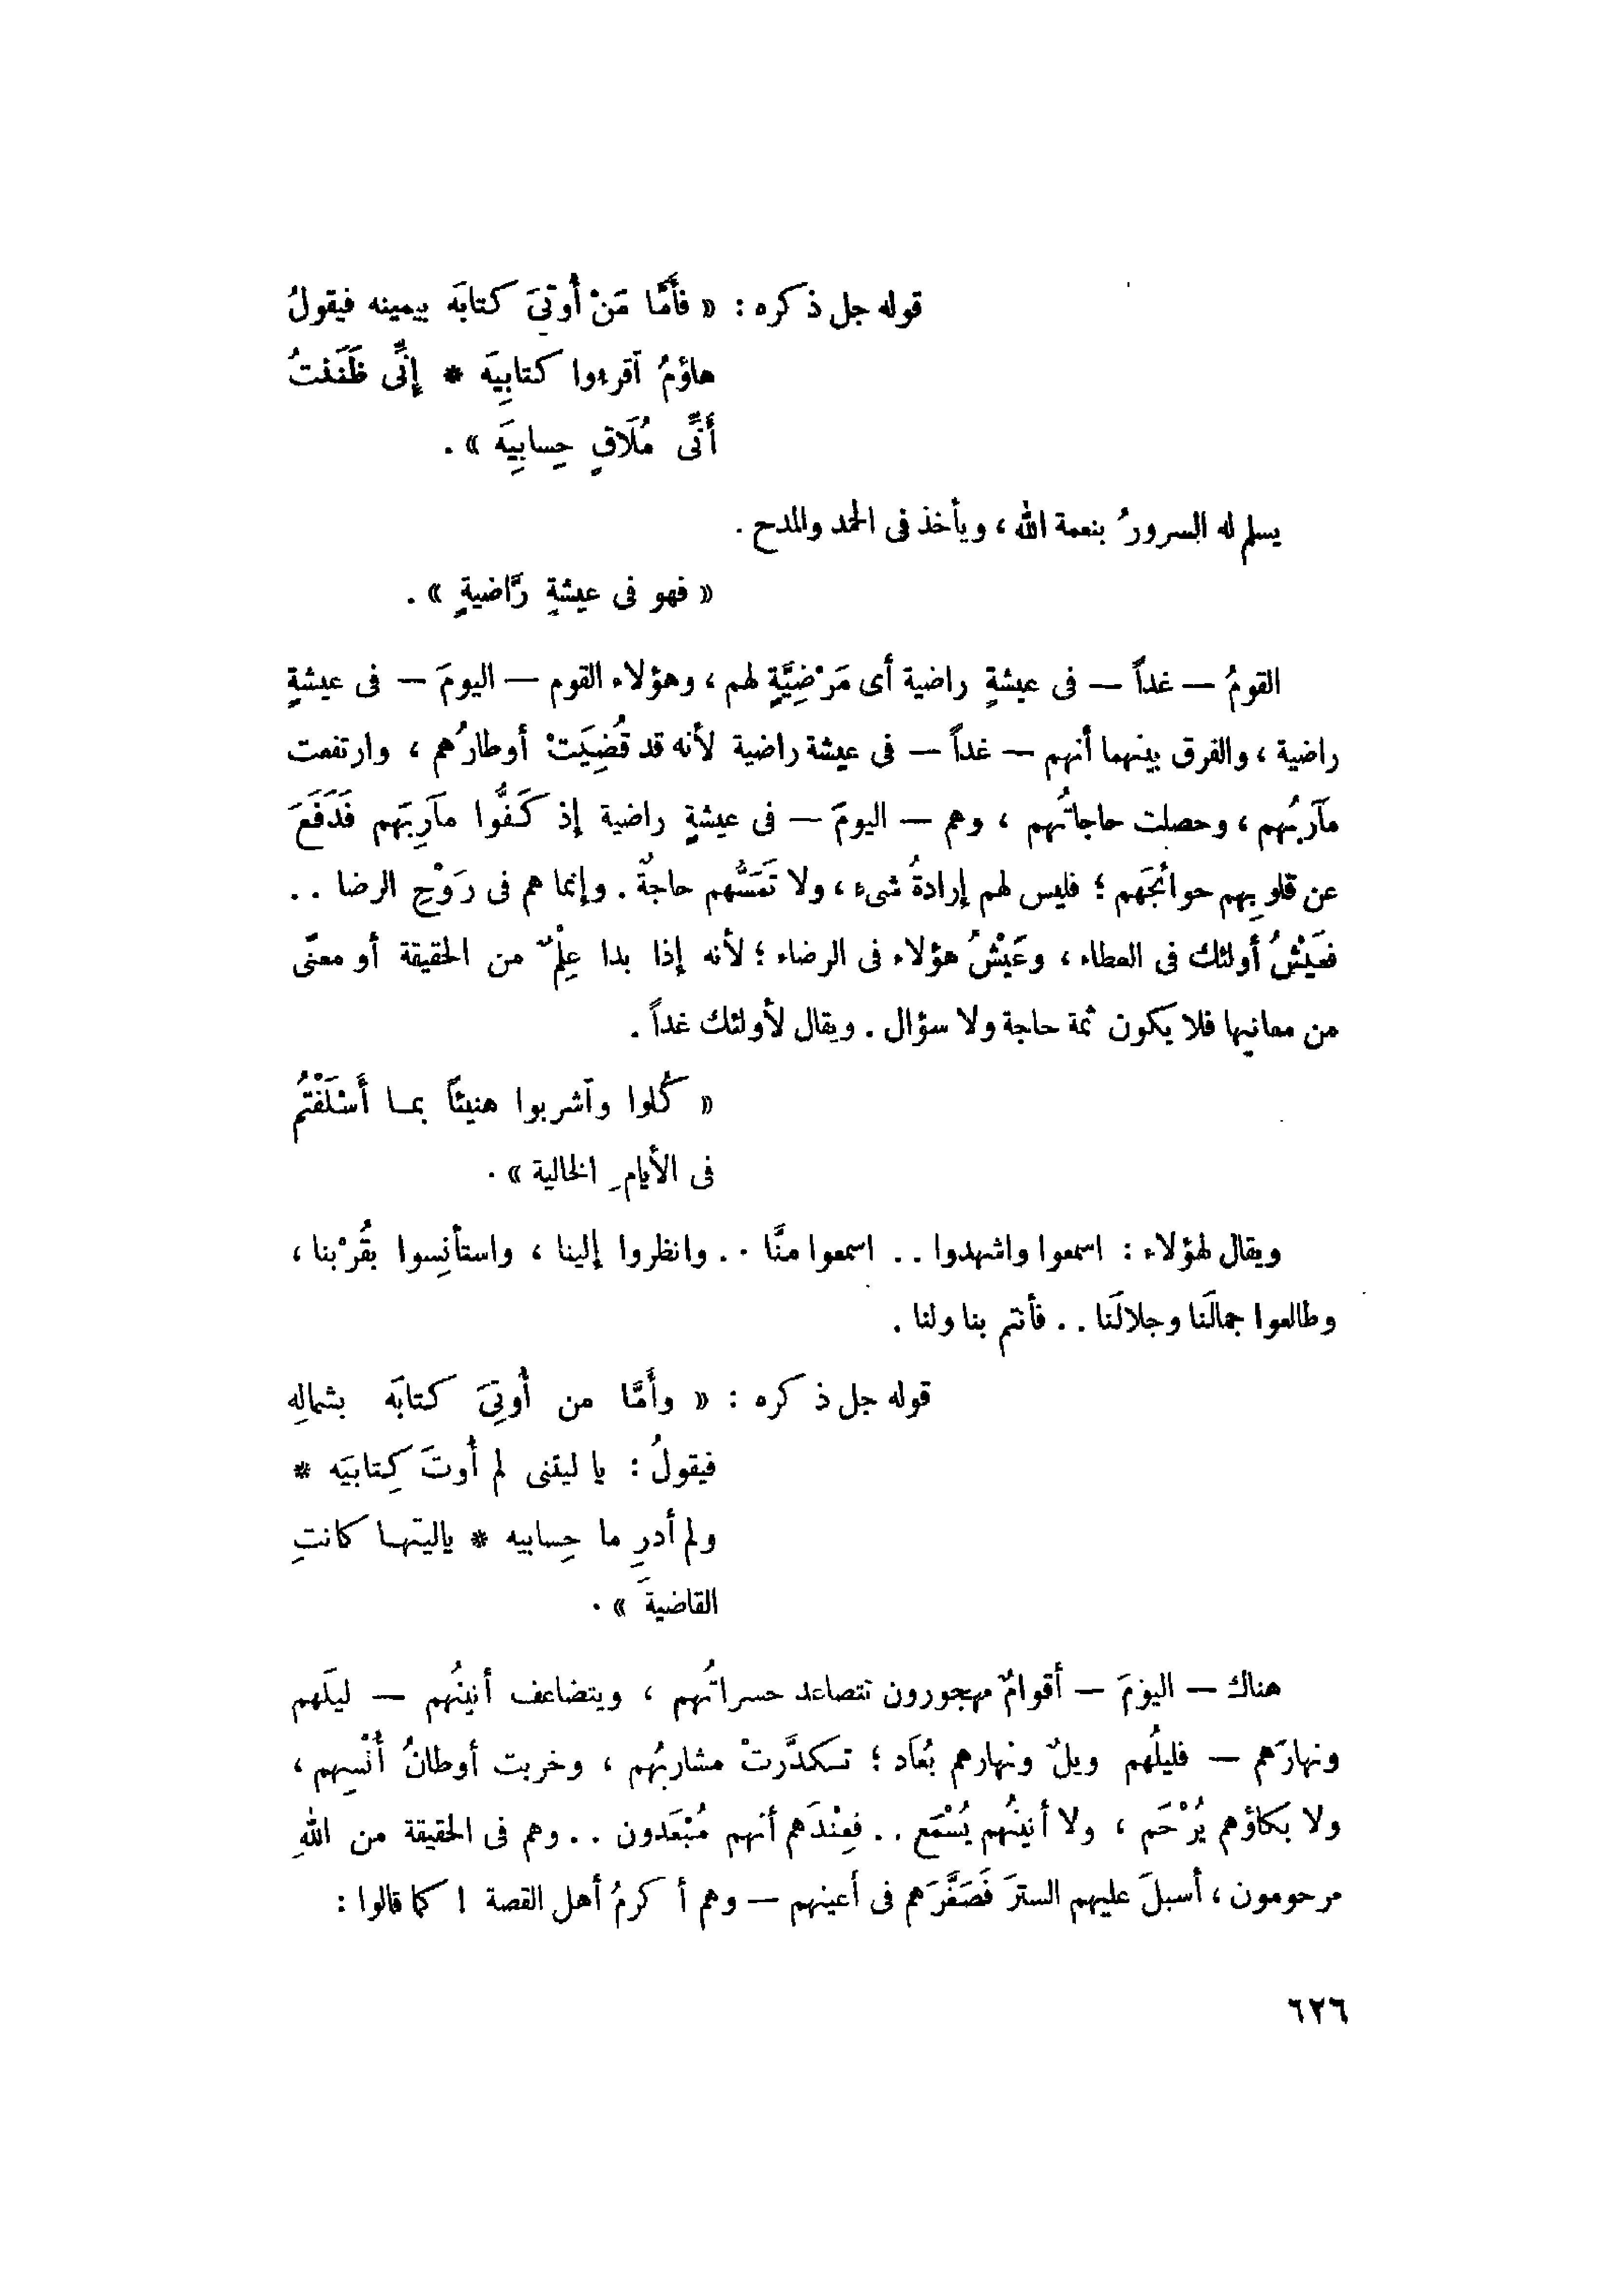 قوله جل ذكره : « فأَمَّا مَنْ أُوتِىَ كتابَه بيمينه فيقولُ
هاؤمُ آقرءوا كتابِيَه * إِنِّى ظَنَنتُ
أَنِّى مُلَاقٍ حِسابِيَه » .
يسلم له السرورُ بنعمة الله ، ويأخذ فى الحمد والمدح .
« فهو فى عيشةٍ رَّاضيةٍ » .
القومُ — غداً — فى عيشةٍ راضية أى مَرْضِيَّةٍ لهم ، وهؤلاء القوم — اليومَ — فى عيشةٍ
راضية ، والفرق بينهما أنهم — غداً — فى عيشة راضية لأنه قد قُضِيَتْ أوطارُهم ، وارتفعت
مآربُهم ، وحصلت حاجاتُهم ، وهم — اليومَ — فى عيشةٍ راضية إذ كَفُّوا مآرِبَهم فَدَفَعَ
عن قلوبِهم حوائجَهم ؛ فليس لهم إرادةُ شىء ، ولا تَمَسُّهم حاجةٌ . وإنما هم فى رَوْحِ الرضا . .
فعَيْشُ أولئك فى العطاء ، وعَيْشُ هؤلاء فى الرضاء ؛ لأنه إذا بدا عِلْمٌ من الحقيقة أو معنًى
من معانيها فلا يكون ثمة حاجة ولا سؤال . ويقال لأولئك غداً .
« كُلوا وآشربوا هنيئاً بمـا أَسْلَفْتُم
فى الأيامِ الخالية » .
ويقال لهؤلاء : اسمعوا واشهدوا . . اسمعوا منَّا . . وانظروا إلينا ، واستأنِسوا بقُرْبنا ،
وطالعوا جمالَنا وجلالَنا . . فأنتم بنا ولنا .
قوله جل ذكره : « وأَمَّا من أُوتِىَ كتابَه بشمالِهِ
فيقولُ : يا ليتنى لم أُوتَ كِتابيَه *
ولم أدرِ ما حِسابيه * ياليتهـا كانتِ
القاضيةَ » .
هناك — اليومَ — أقوامٌ مهجورون تتصاعد حسراتُهم ، ويتضاعف أنينُهم — ليلَهم
ونهارَهم — فليلُهم ويلٌ ونهارهم بُعَاد ؛ تـكدَّرتْ مشاربُهم ، وخربت أوطانُ أُنْسِهم ،
ولا بكاؤهم يُرْحَم ، ولا أنينُهم يُسْمَع . . فعِنْدَهم أنهم مُبْعَدون . . وهم فى الحقيقة من اللهِ
مرحومون ، أسبلَ عليهم السترَ فَصَغَّرَهم فى أعينهم — وهم أكرمُ أهل القصة ! كما قالوا :
٦٢٦